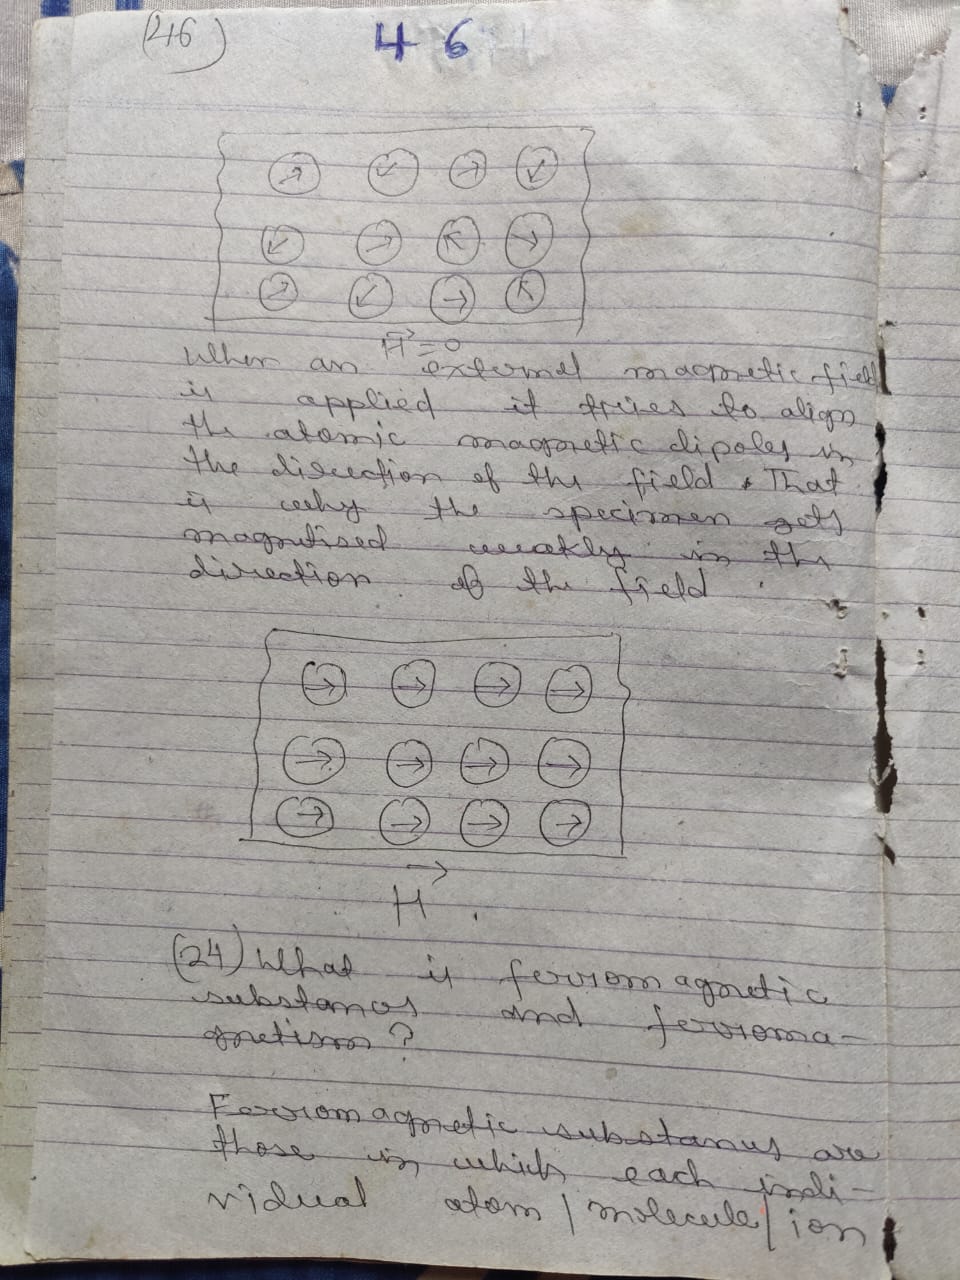 (46) 46
H = 0
When an external magnetic field
is applied it tries to align
the atomic magnetic dipoles in
the direction of the field. That
is why the specimen gets
magnetised weakly in the
direction of the field.
H
(24) What is ferromagnetic
substances and ferroma-
gnetism?
Ferromagnetic substances are
those in which each indi-
vidual atom / molecule / ion